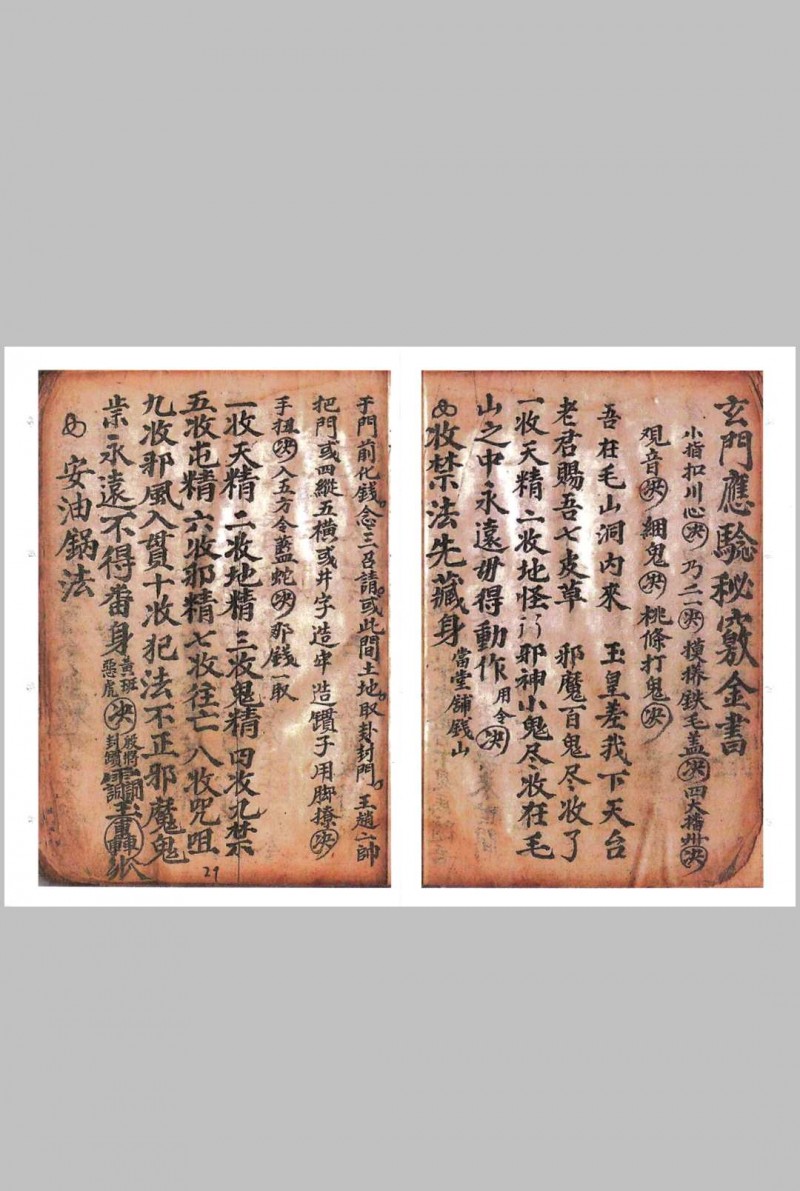 玄門應驗秘竅金書
小指扣川心決乃二一決摸搽鉄毛盖决四大播州决
观音决綑鬼决桃條打鬼决
吾在毛山洞内來 玉皇差我下天台
老君賜吾七皮草 邪魔百鬼尽收了
一收天精二收地怪 邪神小鬼尽收在毛
山之中永遠毋得動作用令决
收禁法先藏身當堂鋪錢山
于門前化錢念三召請或此間土地取卦封門王趙二帥
把門或四縱五横或井字造牢造鑽子用脚撩决
手扭决入五方令藍蛇决那錢一取
一收天精二收地精三收鬼精四收九禁
五收屯精六收邪精七收往亡八收咒咀
九收邪風入貫十收犯法不正邪魔鬼
祟永遠不得番身黄班惡虎决
安油鍋法
29